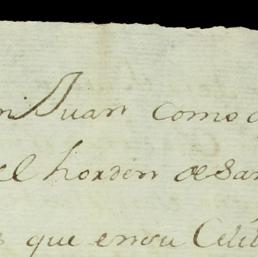 n Juan como
el horden de San
que en su Cel